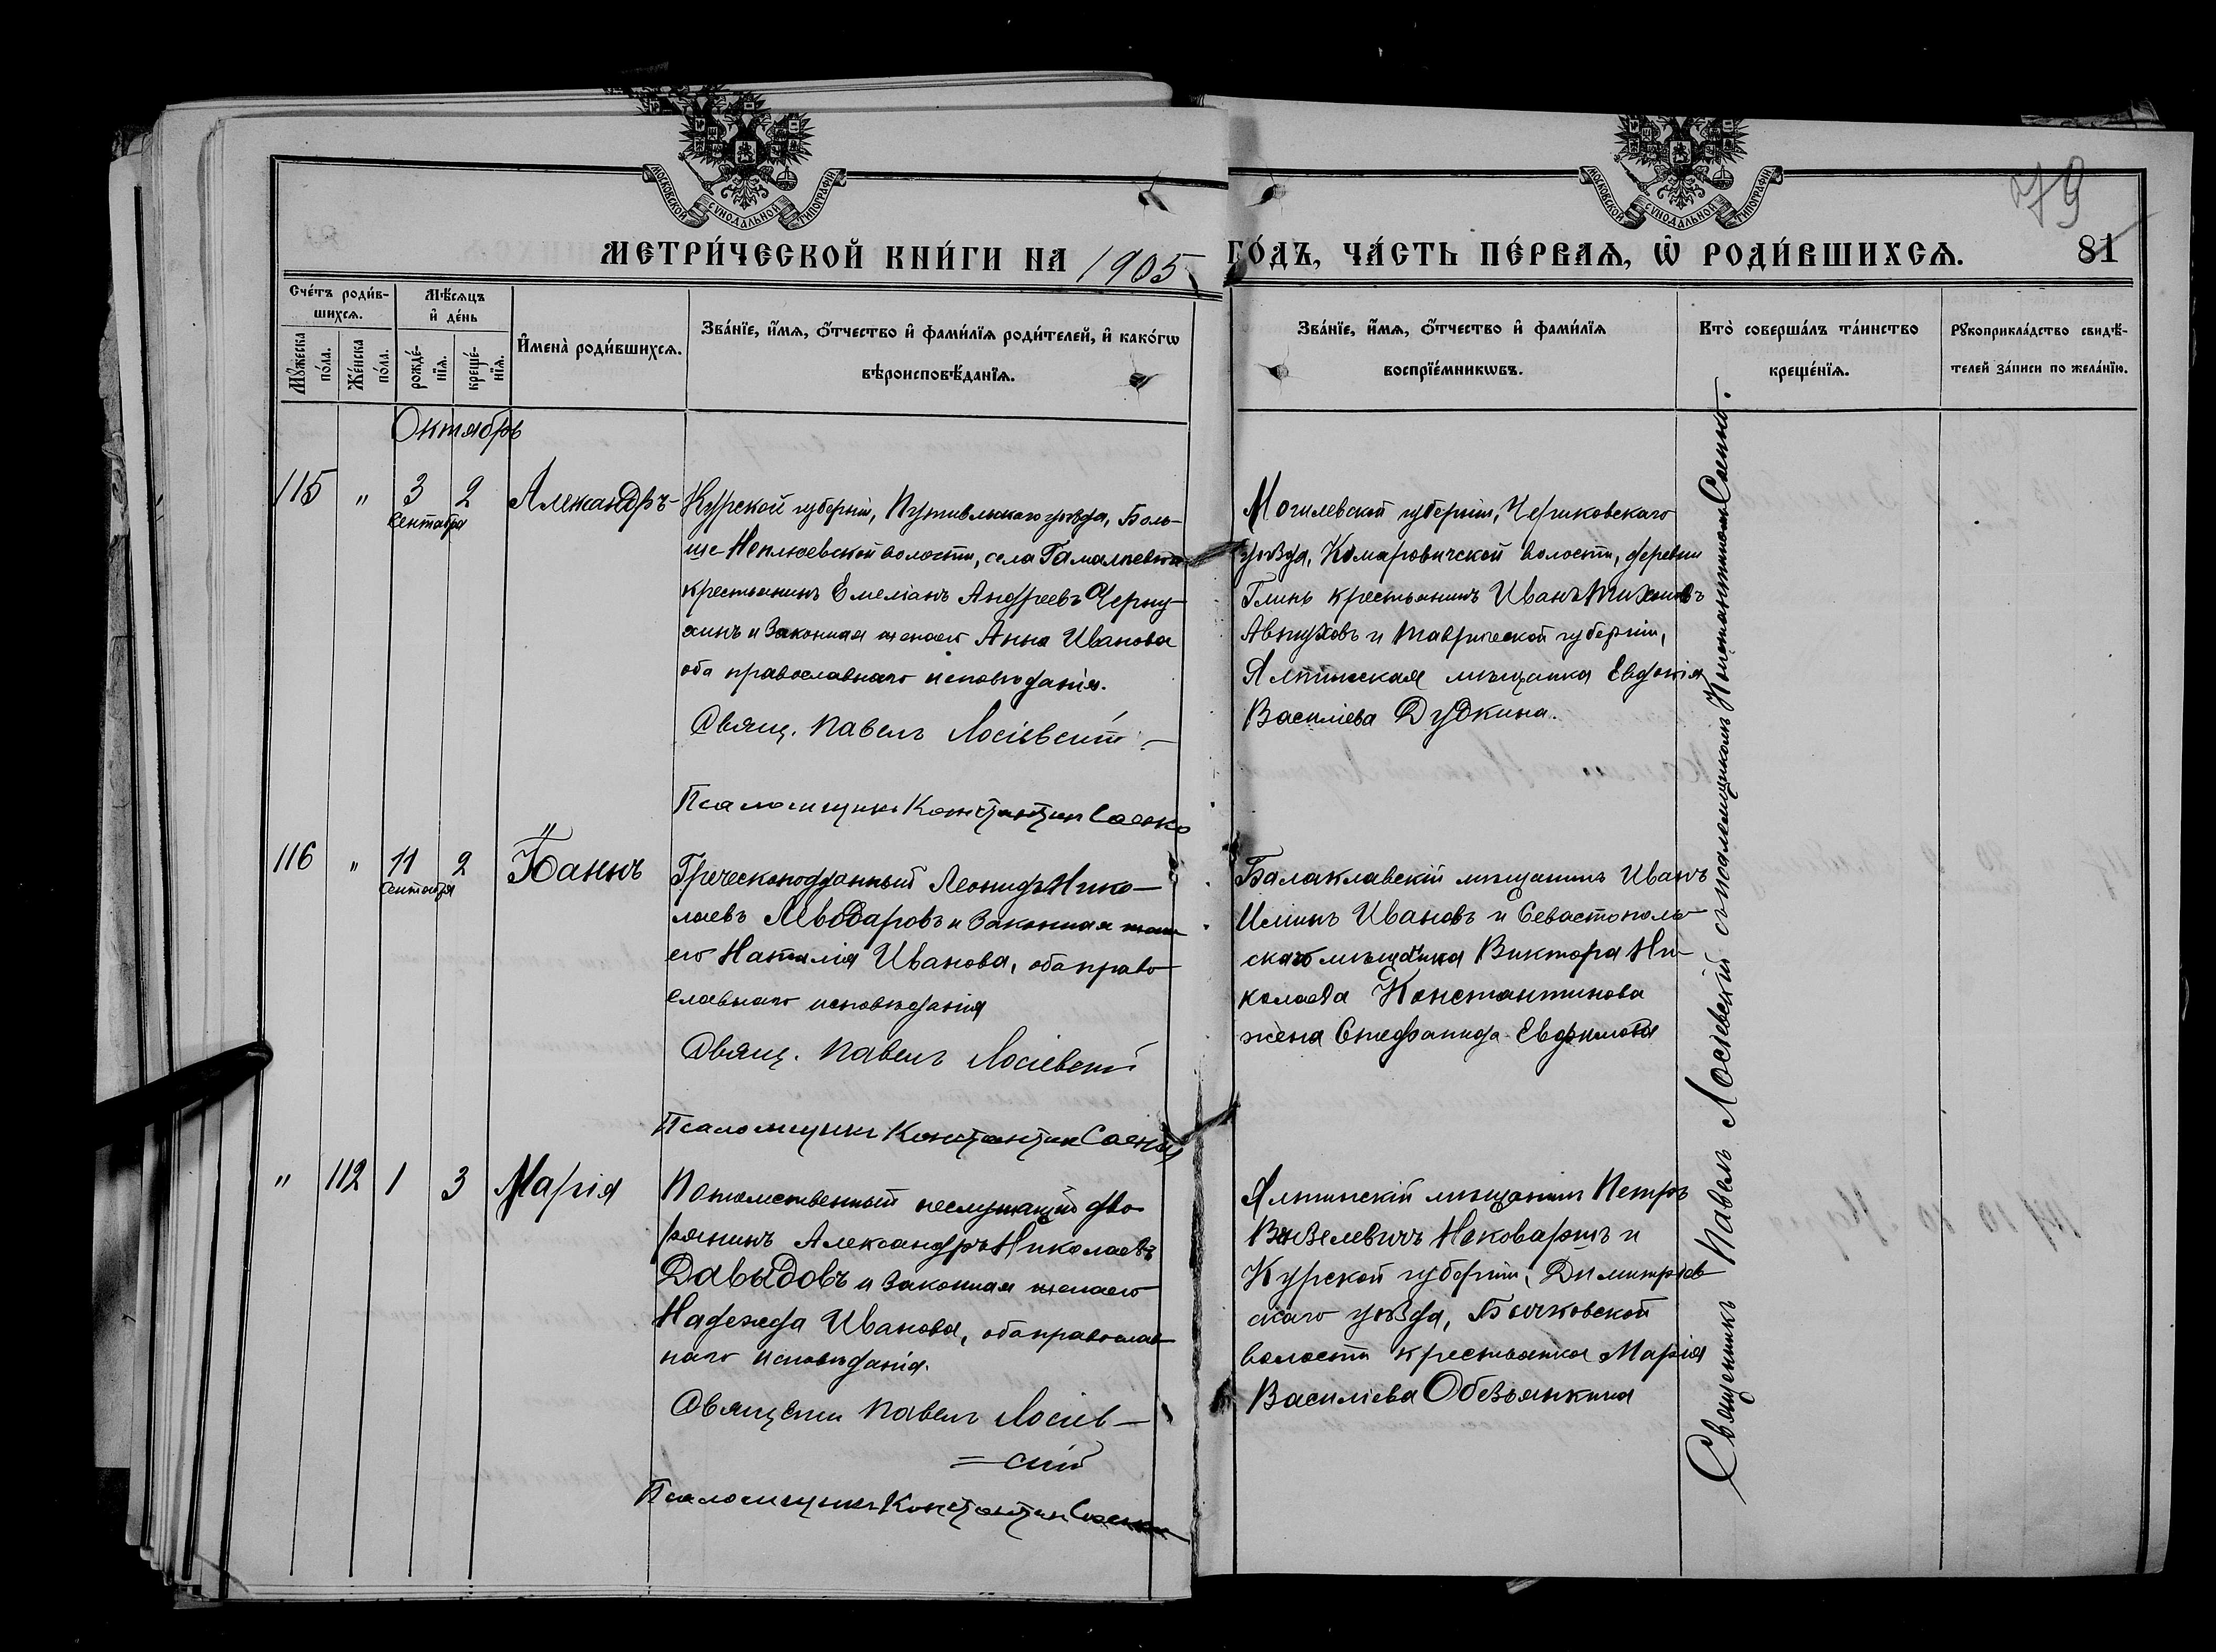 МОСКОВСКОЙ СУНОДАЛЬНОЙ ТИПОГРАФІИ
МОСКОВСКОЙ СУНОДАЛЬНОЙ ТИПОГРАФІИ
79
МЕТРИ́ЧЕСКОЙ КНИ́ГИ НА 1905 ГО́ДЪ, ЧА́СТЬ ПЕ́РВАѦ, Ѡ҆ РОДИ́ВШИХСѦ.
81
Сче́тъ роди́в-
шихсѧ.
Мꙋ́жеска
по́ла.
Же́нска
по́ла.
Мѣ́сѧцъ
и҆ де́нь
рожде́-
нїѧ.
креще́-
нїѧ.
И҆мена̀ роди́вшихсѧ.
Зва́нїе, и҆́мѧ, ѻ҆́тчество и҆ фами́лїѧ роди́телей, и҆ како́гѡ
вѣроисповѣ́данїѧ.
Зва́нїе, и҆́мѧ, ѻ҆́тчество и҆ фами́лїѧ
воспрїе́мникѡвъ.
Кто̀ соверша́лъ та́инство
креще́нїѧ.
Рꙋкоприкла́дство свидѣ́-
телей за́писи по жела́нїю.
Октябрь
115 " 3 2 Александръ
Сентября
Курской губерніи, Путивльскаго уѣзда, Боль-
ше-Неплюевской волости, села Гамалѣевки
крестьянинъ Емеліанъ Андреевъ Черну-
хинъ и законная жена его Анна Иванова
оба православнаго исповѣданія.
Свящ. Павелъ Лосіевскій
Псаломщикъ Константин Саенко
Могилевской губерніи, Чериковскаго
уѣзда, Комаровичской волости, деревни
Глинь крестьянинъ Иванъ Тихоновъ
Авпуховъ и Таврической губерніи,
Ялтинская мѣщанка Евдокія
Василіева Дудкина.
116 " 11 2 Іоаннъ
Сентября
Греческоподданный Леонидъ Нико-
лаевъ Левдаровъ и законная жена
его Наталія Иванова, оба право-
славнаго исповѣданія
Свящ. Павелъ Лосіевскій
Псаломщикъ Константин Саенко
Балаклавскій мѣщанинъ Иванъ
Ильинъ Ивановъ и Севастополь-
скаго мѣщанина Виктора Ни-
колаева Константинова
жена Стефанида Евфимова
" 112 1 3 Марія
Потомственный неслужащій дво-
рянинъ Александръ Николаевъ
Давыдовъ и законная жена его
Надежда Иванова, оба православ-
наго исповѣданія.
Священни Павелъ Лосіев-
=скій
Псаломщикъ Константин Саенко
Ялтинскій мѣщанинъ Петръ
Вензелевичъ Нековаржъ и
Курской губерніи, Димитріев-
скаго уѣзда, Бычковской
волости крестьянка Марія
Василіева Обезьянкина
Священникъ Павелъ Лосіевскій съ псаломщикомъ Константиномъ Саенко.